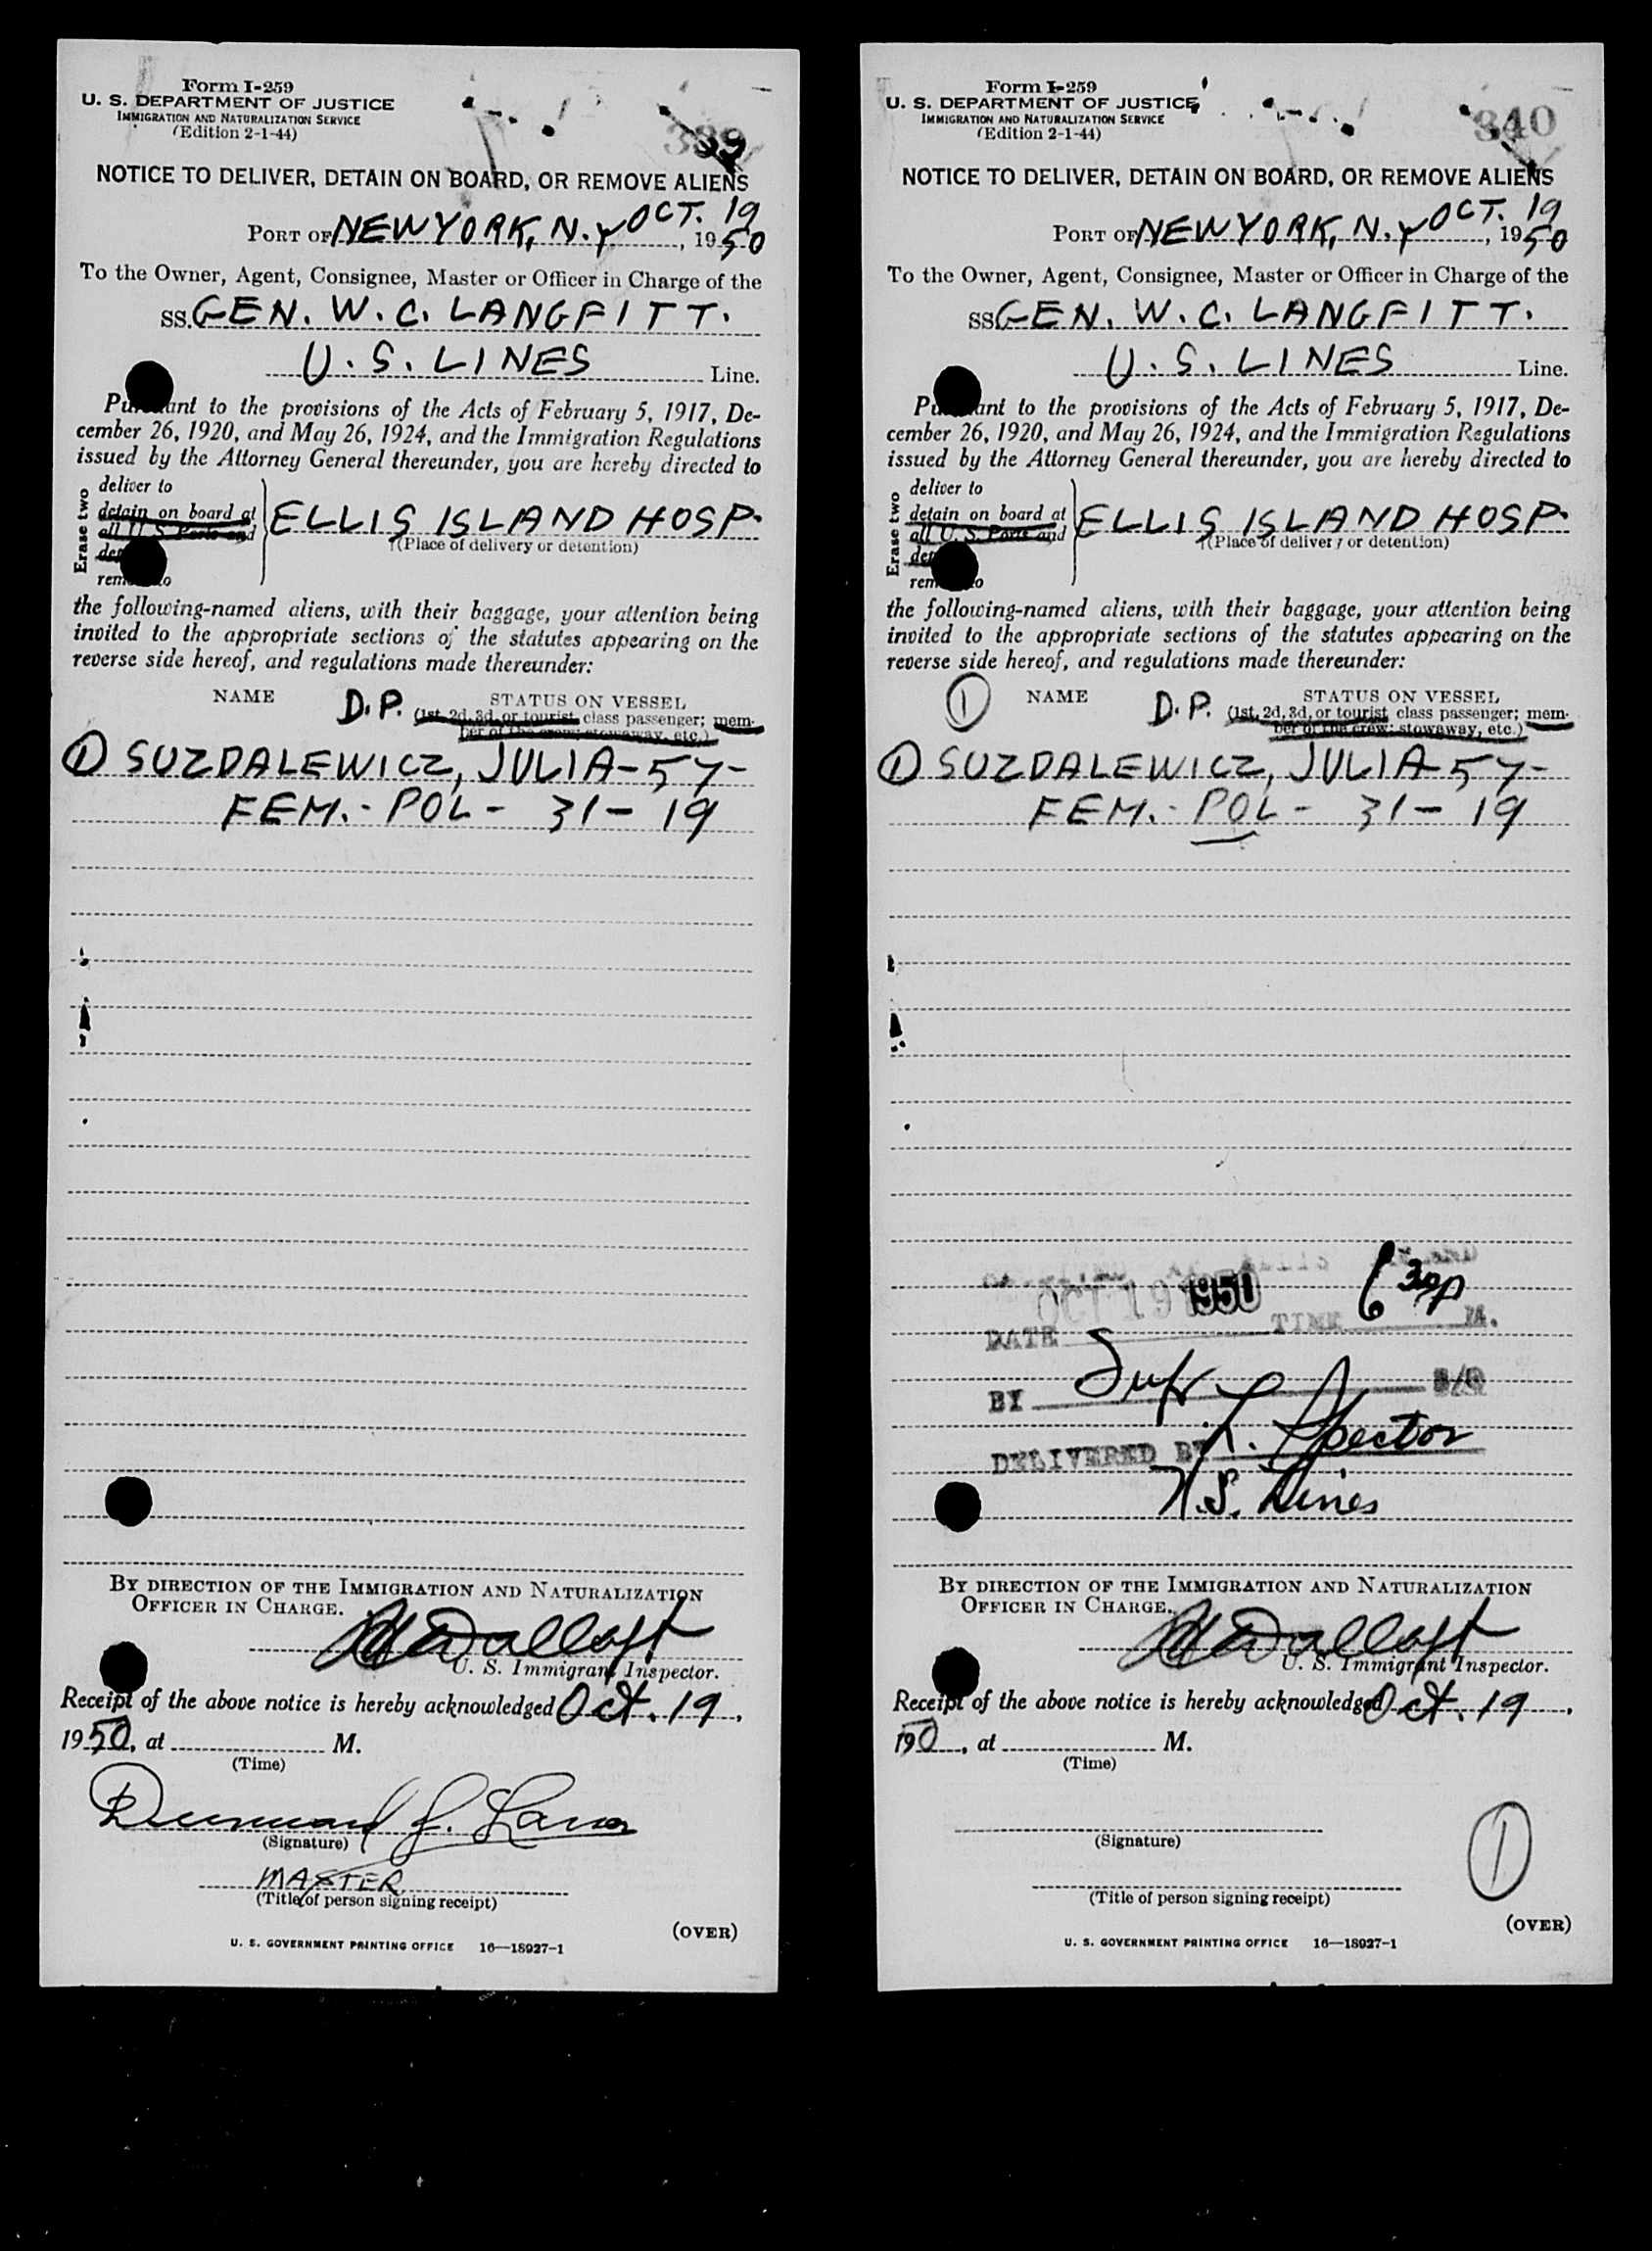 Form I-259
U. S. DEPARTMENT OF JUSTICE
IMMIGRATION AND NATURALIZATION SERVICE
(Edition 2-1-44)
339
NOTICE TO DELIVER, DETAIN ON BOARD, OR REMOVE ALIENS
PORT OF NEW YORK, N.Y OCT. 19, 1950
To the Owner, Agent, Consignee, Master or Officer in Charge of the
SS. GEN. W. C. LANGFITT.
U. S. LINES Line.
Pursuant to the provisions of the Acts of February 5, 1917, De-
cember 26, 1920, and May 26, 1924, and the Immigration Regulations
issued by the Attorney General thereunder, you are hereby directed to
Erase two
deliver to
detain on board at
all U. S. Ports and
remove to
ELLIS ISLAND HOSP.
(Place of delivery or detention)
the following-named aliens, with their baggage, your attention being
invited to the appropriate sections of the statutes appearing on the
reverse side hereof, and regulations made thereunder:
NAME D.P. STATUS ON VESSEL
(1st, 2d, 3d, or tourist class passenger; mem-
ber of the crew; stowaway, etc.)
① SUZDALEWICZ, JULIA - 57 -
FEM. - POL - 31 - 19
BY DIRECTION OF THE IMMIGRATION AND NATURALIZATION
OFFICER IN CHARGE.
U. S. Immigrant Inspector.
Receipt of the above notice is hereby acknowledged Oct. 19,
1950, at M.
(Time)
(Signature)
MASTER
(Title of person signing receipt)
(OVER)
U. S. GOVERNMENT PRINTING OFFICE 16—18927-1
Form I-259
U. S. DEPARTMENT OF JUSTICE
IMMIGRATION AND NATURALIZATION SERVICE
(Edition 2-1-44)
340
NOTICE TO DELIVER, DETAIN ON BOARD, OR REMOVE ALIENS
PORT OF NEW YORK, N.Y OCT. 19, 1950
To the Owner, Agent, Consignee, Master or Officer in Charge of the
SS. GEN. W. C. LANGFITT.
U. S. LINES Line.
Pursuant to the provisions of the Acts of February 5, 1917, De-
cember 26, 1920, and May 26, 1924, and the Immigration Regulations
issued by the Attorney General thereunder, you are hereby directed to
Erase two
deliver to
detain on board at
all U. S. Ports and
remove to
ELLIS ISLAND HOSP.
(Place of delivery or detention)
the following-named aliens, with their baggage, your attention being
invited to the appropriate sections of the statutes appearing on the
reverse side hereof, and regulations made thereunder:
① NAME D.P. STATUS ON VESSEL
(1st, 2d, 3d, or tourist class passenger; mem-
ber of the crew; stowaway, etc.)
① SUZDALEWICZ, JULIA - 57 -
FEM. - POL - 31 - 19
OCT 19 1950 6 30 p
DATE TIME M.
BY
DELIVERED BY Spector
U.S. Lines
BY DIRECTION OF THE IMMIGRATION AND NATURALIZATION
OFFICER IN CHARGE.
U. S. Immigrant Inspector.
Receipt of the above notice is hereby acknowledged Oct. 19,
1950, at M.
(Time)
(Signature)
①
(Title of person signing receipt)
(OVER)
U. S. GOVERNMENT PRINTING OFFICE 16—18927-1